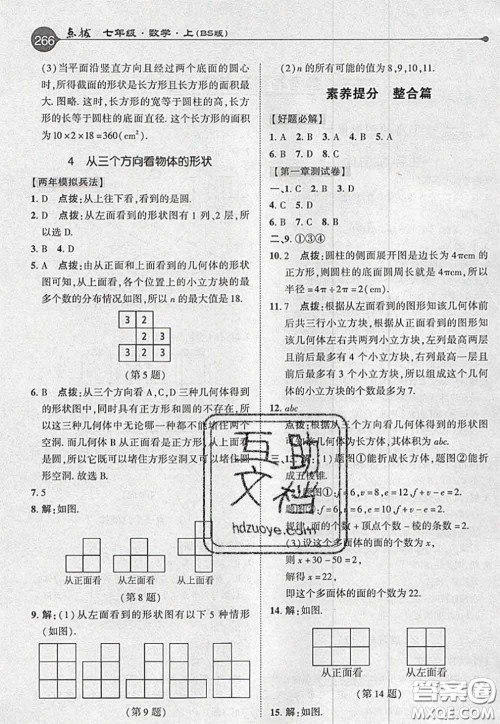 266 点拨 七年级·数学·上(BS版)
(3)当平面沿竖直方向且经过两个底面的圆心
时,所得截面的形状是长方形且长方形的面积最
大.图略.这时,长方形的宽等于圆柱的高,长方
形的长等于圆柱的底面直径.这个长方形的面积
为10×2×18=360(cm²).
4 从三个方向看物体的形状
【两年模拟兵法】
1. D 点拨:从上往下看,看到的是圆.
2. D 点拨:从左面看到的形状图有1列,2层,所
以选D.
3. B 4. D
5. A 点拨:由从正面和上面看到的几何体的形状
图可知,从上面看,各个位置上的小立方块的最
多个数的分布情况如图,所以n的最大值是18.
3 2
2 3
3 2 3
(第5题)
6. B 点拨:从三个方向看A,C,D三种几何体得到
的形状图中,同时具有正方形和圆的不存在,所
以这三种几何体中无论哪一种都不能堵住两个
空洞.而几何体B从正面看是正方形,从上面看是
圆,所以它既可以堵住方形空洞又可以堵住圆
形空洞.故选B.
7. 5
8. 解:如图.
从正面看 从左面看 从上面看
(第8题)
9. 解:(1)从左面看到的形状图有以下5种情形
(如图).
(2)n的所有可能的值为8,9,10,11.
素养提分 整合篇
【好题必解】
1. A 2. B 3. A 4. D 5. A
【第一章测试卷】
一、1. C 2. B 3. D 4. B 5. D
6. C 7. D 8. B
二、9. ①③④
10. 2 点拨:圆柱的侧面展开图是边长为4πcm的
正方形,则圆柱的底面圆周长为4πcm,所以
半径=4π÷2π÷2=2(cm).
11. 7 点拨:根据从左面看到的图形知该几何体前
后共三行小立方块,根据从正面看到的图形知
该几何体左右共两列小立方块,左列最高一层
小立方块,右列最高一层小立方块,且前后三
行最高一层,所以组成这个几
何体的小立方块的个数最多为7.
12. abc
三、13. 解:(1)题图①能折成长方体,题图②能折
成五棱锥.
(2)题图①:f=6,v=8,e=12,f+v-e=2.
题图②:f=6,v=6,e=10,f+v-e=2.
规律:面的个数+顶点个数-棱的条数=2.
(3)设这个多面体的面的个数为x,
则x+x+8-50=2.
解得x=22.
所以这个多面体的面的个数为22.
14. 解:如图.
从正面看 从左面看
(第14题)
15. 解:如图.
互助
文档
hdzuoye.com
答案圈
MXQE.COM